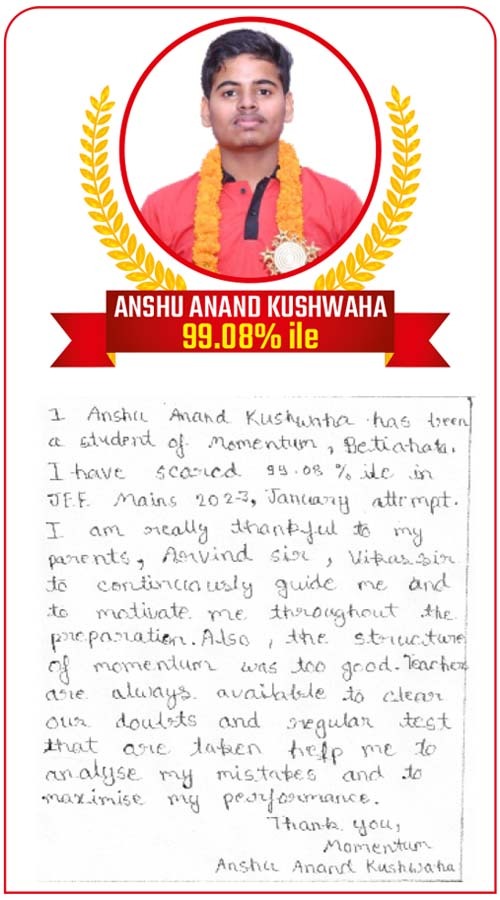 ANSHU ANAND KUSHWAHA
99.08% ile
I Anshu Anand Kushwaha has been
a student of Momentum, Betiahata.
I have scored 99.08 % ile in
JEE Mains 2023, January attempt.
I am really thankful to my
parents, Arvind sir, Vikas sir
to continuously guide me and
to motivate me throughout the
preparation. Also, the structure
of momentum was too good. Teachers
are always available to clear
our doubts and regular test
that are taken help me to
analyse my mistakes and to
maximise my performance.
Thank you,
Momentum
Anshu Anand Kushwaha